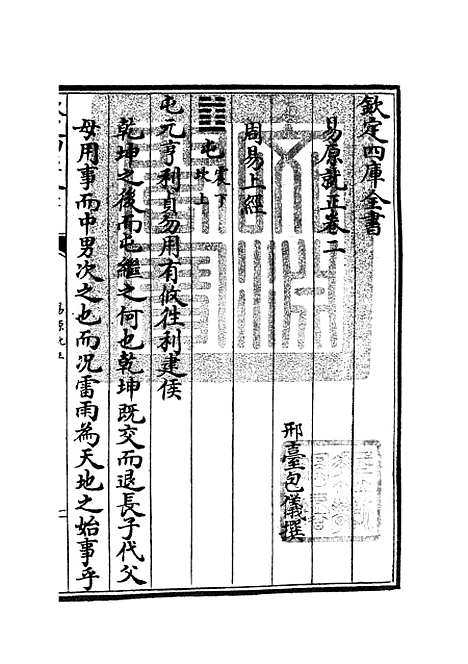 欽定四庫全書
易原就正卷二
邢臺包儀撰
周易上經
屯 震下 坎上
屯元亨利貞勿用有攸往利建侯
乾坤之後而屯繼之何也乾坤既交而退長子代父
母用事而中男次之也而况雷雨為天地之始事乎
易原就正